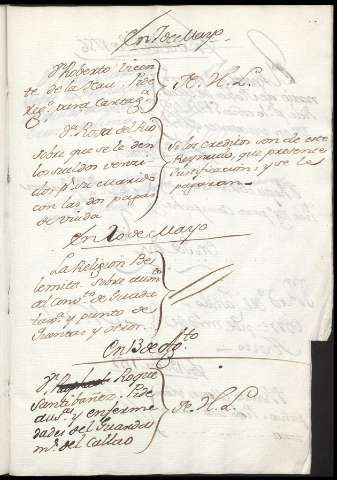 En 7 de Mayo
Dn Roberto Vicen
te de la Nau. Pide
lizª para Cartagª
Se. H. Lª
Dª Rosa del Rio
Sobre que se la den
los sueldos venzi
dos pr su marido
con las dos pagas
de viuda
Si los creditos son de este
Reynado, que presente
justificacion, y se la
pagaran
En 20 de Mayo
La Religion Be
lemita sobre aumto
al convto de Guada
laxª y punto de
y otros.
En 13 de Agto
Dn Roque
Santibañez. Pide
ausª y enferme
dades del Guarda
mr del Callao
Se. H. L.